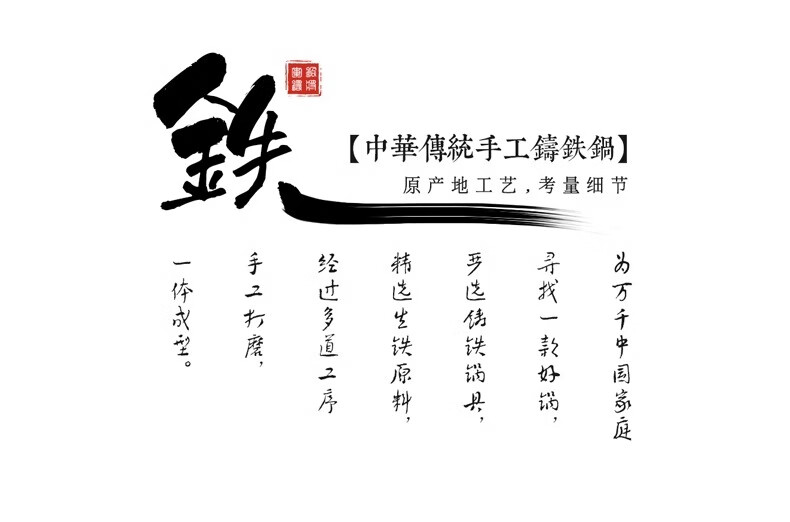 鉄
【中華傳統手工鑄鉄鍋】
原产地工艺,考量细节
为万千中国家庭
寻找一款好锅,
严选铸铁锅具,
精选生铁原料,
经过多道工序
手工打磨,
一体成型。